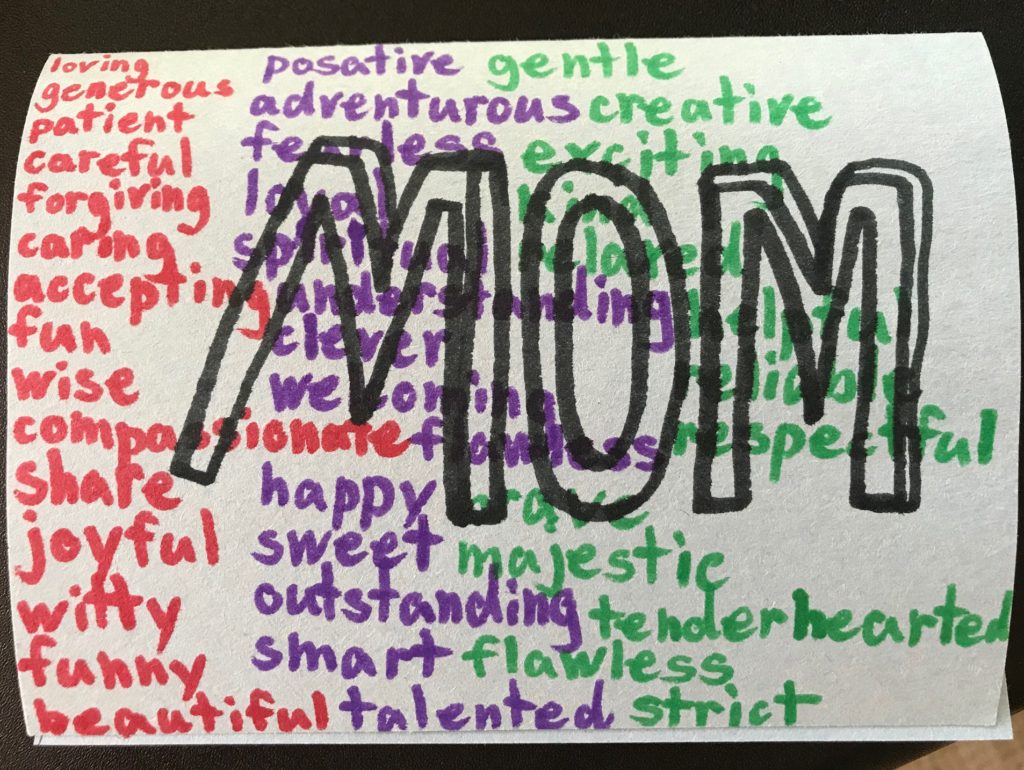 loving
generous
patient
careful
forgiving
caring
accepting
fun
wise
compassionate
share
joyful
witty
funny
beautiful
posative
adventurous
fearless
loyal
spiritual
understanding
clever
welcoming
flawless
happy
sweet
outstanding
smart
talented
gentle
creative
exciting
kind
relaxed
helpful
reliable
respectful
brave
majestic
tenderhearted
flawless
strict
MOM